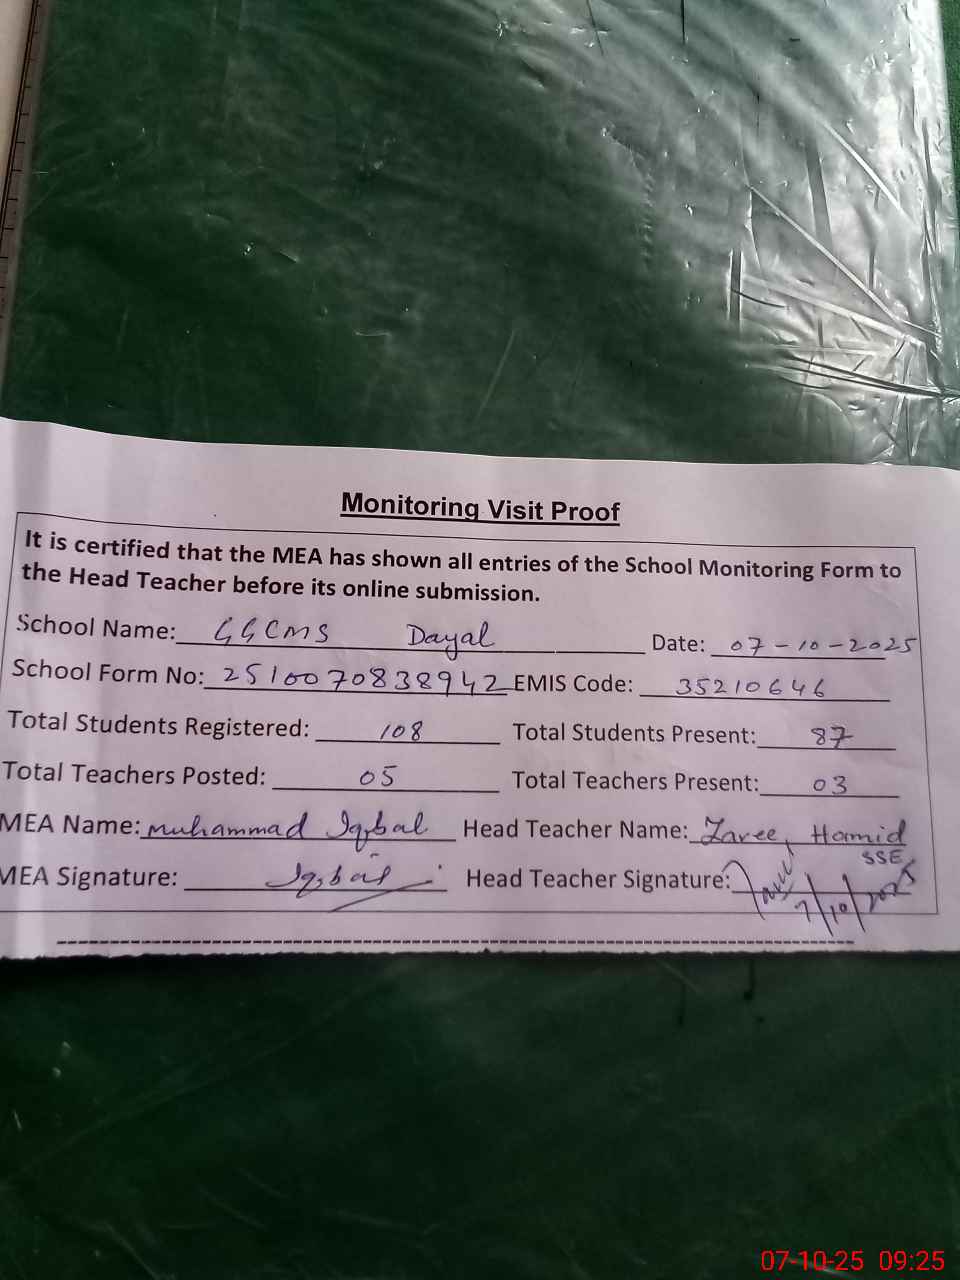 Monitoring Visit Proof
It is certified that the MEA has shown all entries of the School Monitoring Form to
the Head Teacher before its online submission.
School Name: GGCMS Dayal Date: 07-10-2025
School Form No: 2510070838942 EMIS Code: 35210646
Total Students Registered: 108 Total Students Present: 87
Total Teachers Posted: 05 Total Teachers Present: 03
MEA Name: Muhammad Iqbal Head Teacher Name: Hamid
SSE
MEA Signature: Iqbal Head Teacher Signature:
7/10/2025
07-10-25 09:25